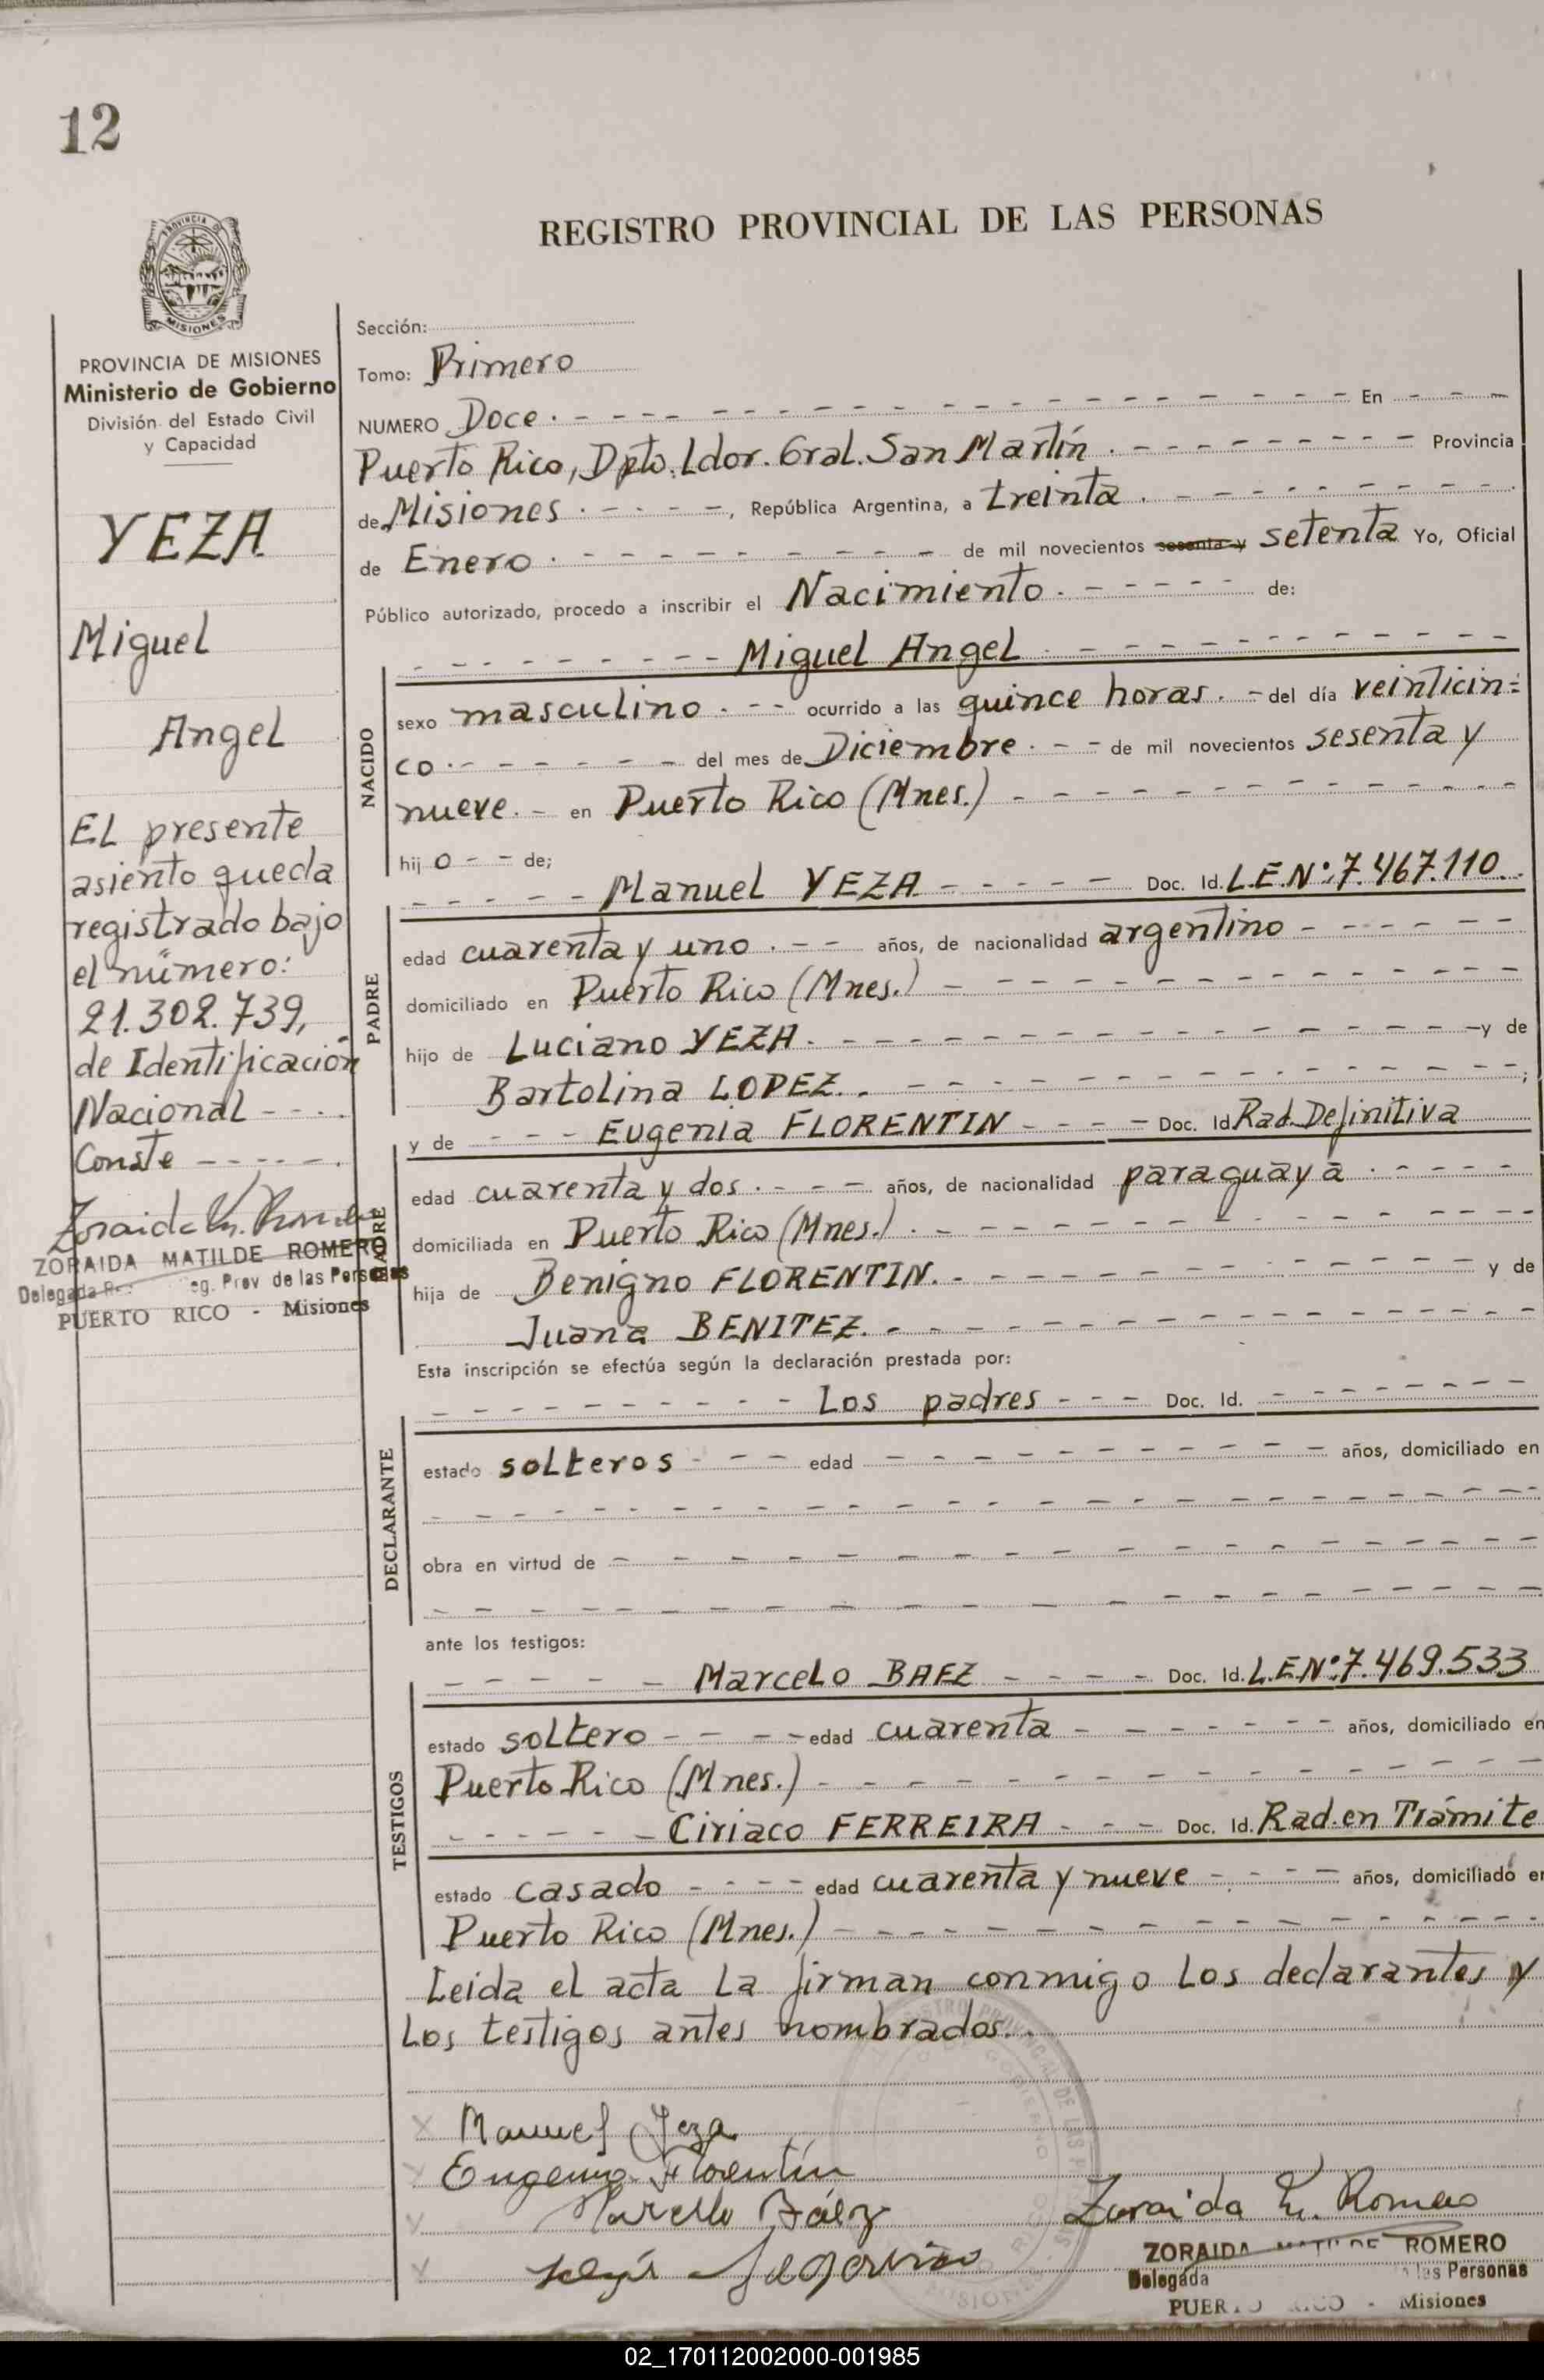 12
REGISTRO PROVINCIAL DE LAS PERSONAS
PROVINCIA
MISIONES
PROVINCIA DE MISIONES
Ministerio de Gobierno
División del Estado Civil
y Capacidad
YEZA
Miguel
Angel
EL presente
asiento queda
registrado bajo
el número:
21.302.739,
de Identificación
Nacional - - - .
Conste - - - - - .
Zoraida M. Romero
ZORAIDA MATILDE ROMERO
Delegada eg. Prov de las Personas
PUERTO RICO - Misiones
Sección:
Tomo: Primero
NUMERO Doce. - - - En - - -
Puerto Rico, Dpto. Ldor. Gral. San Martín. - - - Provincia
de Misiones. - - -, República Argentina, a treinta. - - -
de Enero. - - - de mil novecientos sesenta y setenta Yo, Oficial
Público autorizado, procedo a inscribir el Nacimiento. - - - de:
- - - Miguel Angel. - - -
NACIDO
sexo masculino. - - ocurrido a las quince horas. - del día veinticin=
co. - - - del mes de Diciembre. - - de mil novecientos sesenta y
nueve. - en Puerto Rico (Mnes.) - - -
hij o - - de;
- - - Manuel YEZA - - - Doc. Id. L.E.Nº:7.467.110.
PADRE
edad cuarenta y uno. - - años, de nacionalidad argentino - - -
domiciliado en Puerto Rico (Mnes.) - - -
hijo de Luciano YEZA. - - - y de
Bartolina LOPEZ. - - - ;
y de - - - Eugenia FLORENTIN - - - Doc. Id Rad. Definitiva
MADRE
edad cuarenta y dos. - - - años, de nacionalidad paraguaya. - - -
domiciliada en Puerto Rico (Mnes.). - - -
hija de Benigno FLORENTIN. - - - y de
Juana BENITEZ. - - -
Esta inscripción se efectúa según la declaración prestada por:
- - - Los padres - - - Doc. Id. - - -
DECLARANTE
estado solteros - - - edad - - - años, domiciliado en
- - -
obra en virtud de - - -
- - -
ante los testigos:
- - - Marcelo BAEZ - - - Doc. Id. L.E.Nº:7.469.533
TESTIGOS
estado soltero - - - edad cuarenta - - - años, domiciliado en
Puerto Rico (Mnes.) - - -
- - - Ciriaco FERREIRA - - - Doc. Id. Rad. en Trámite
estado casado - - - edad cuarenta y nueve - - - años, domiciliado en
Puerto Rico (Mnes.) - - -
Leida el acta la firman conmigo los declarantes y
los testigos antes nombrados.
Manuel Yeza
Eugenia Florentín
Marcelo Báez
Zoraida M. Romero
ZORAIDA MATILDE ROMERO
Delegada las Personas
PUERTO RICO - Misiones
02_170112002000-001985